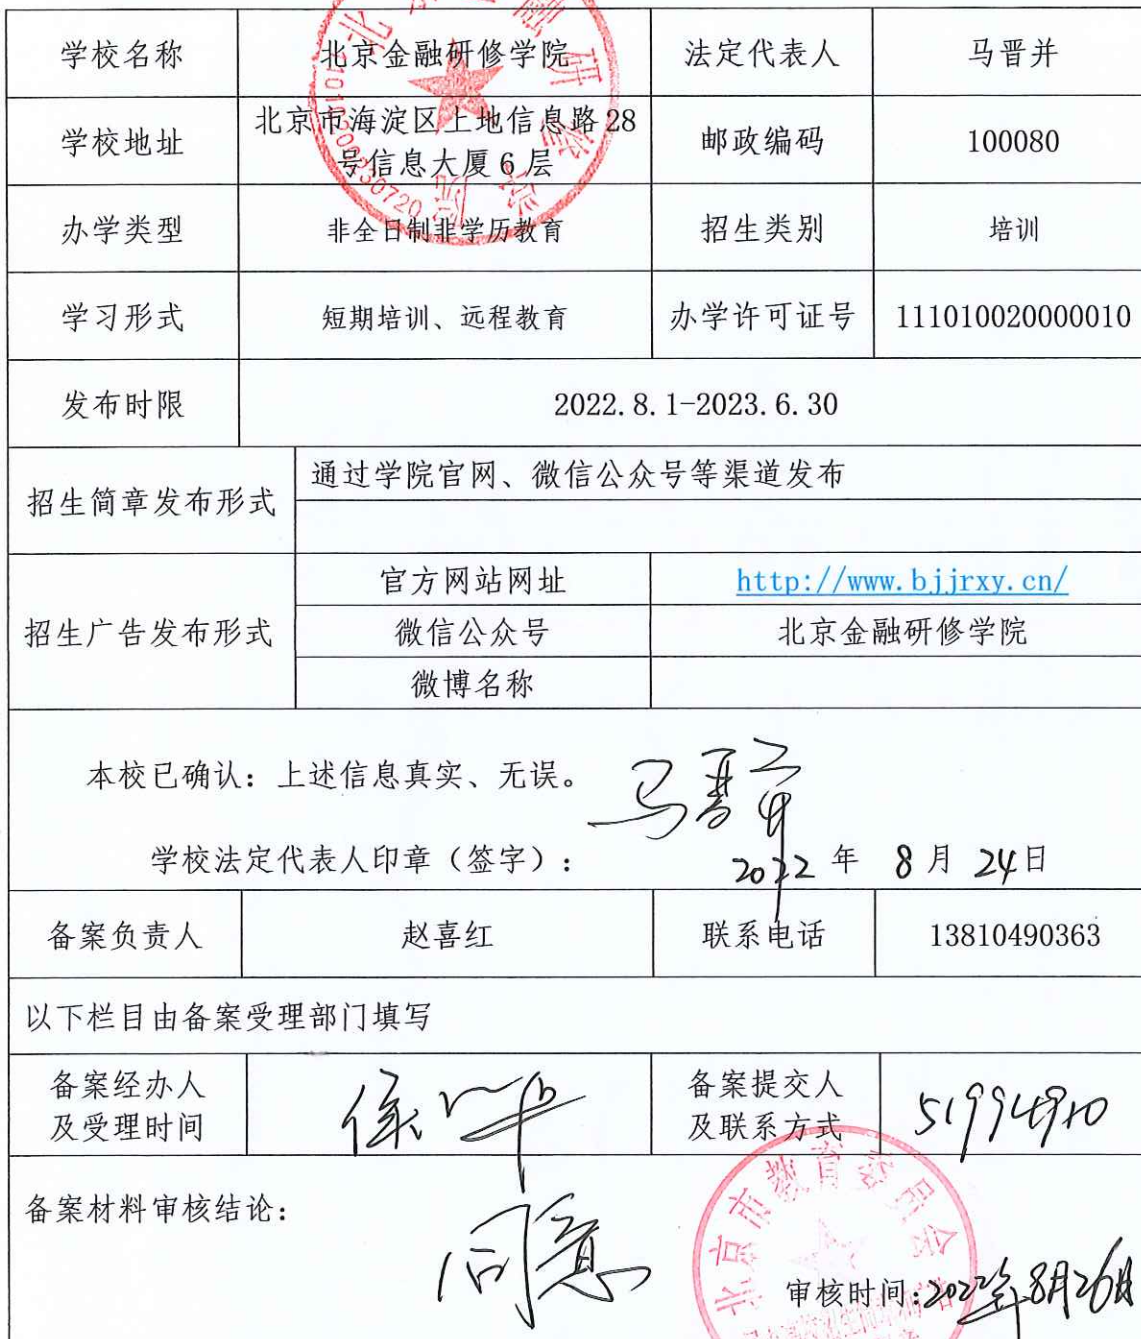 学校名称 北京金融研修学院 法定代表人 马晋并
学校地址 北京市海淀区上地信息路28
号信息大厦6层 邮政编码 100080
办学类型 非全日制非学历教育 招生类别 培训
学习形式 短期培训、远程教育 办学许可证号 111010020000010
发布时限 2022.8.1-2023.6.30
招生简章发布形式 通过学院官网、微信公众号等渠道发布
招生广告发布形式 官方网站网址 http://www.bjjrxy.cn/
微信公众号 北京金融研修学院
微博名称
本校已确认：上述信息真实、无误。
马晋并
学校法定代表人印章（签字）： 2022年 8月 24日
备案负责人 赵喜红 联系电话 13810490363
以下栏目由备案受理部门填写
备案经办人
及受理时间
备案提交人
及联系方式
备案材料审核结论：
同意
北京市教育委员会
审核时间：2022年8月26日